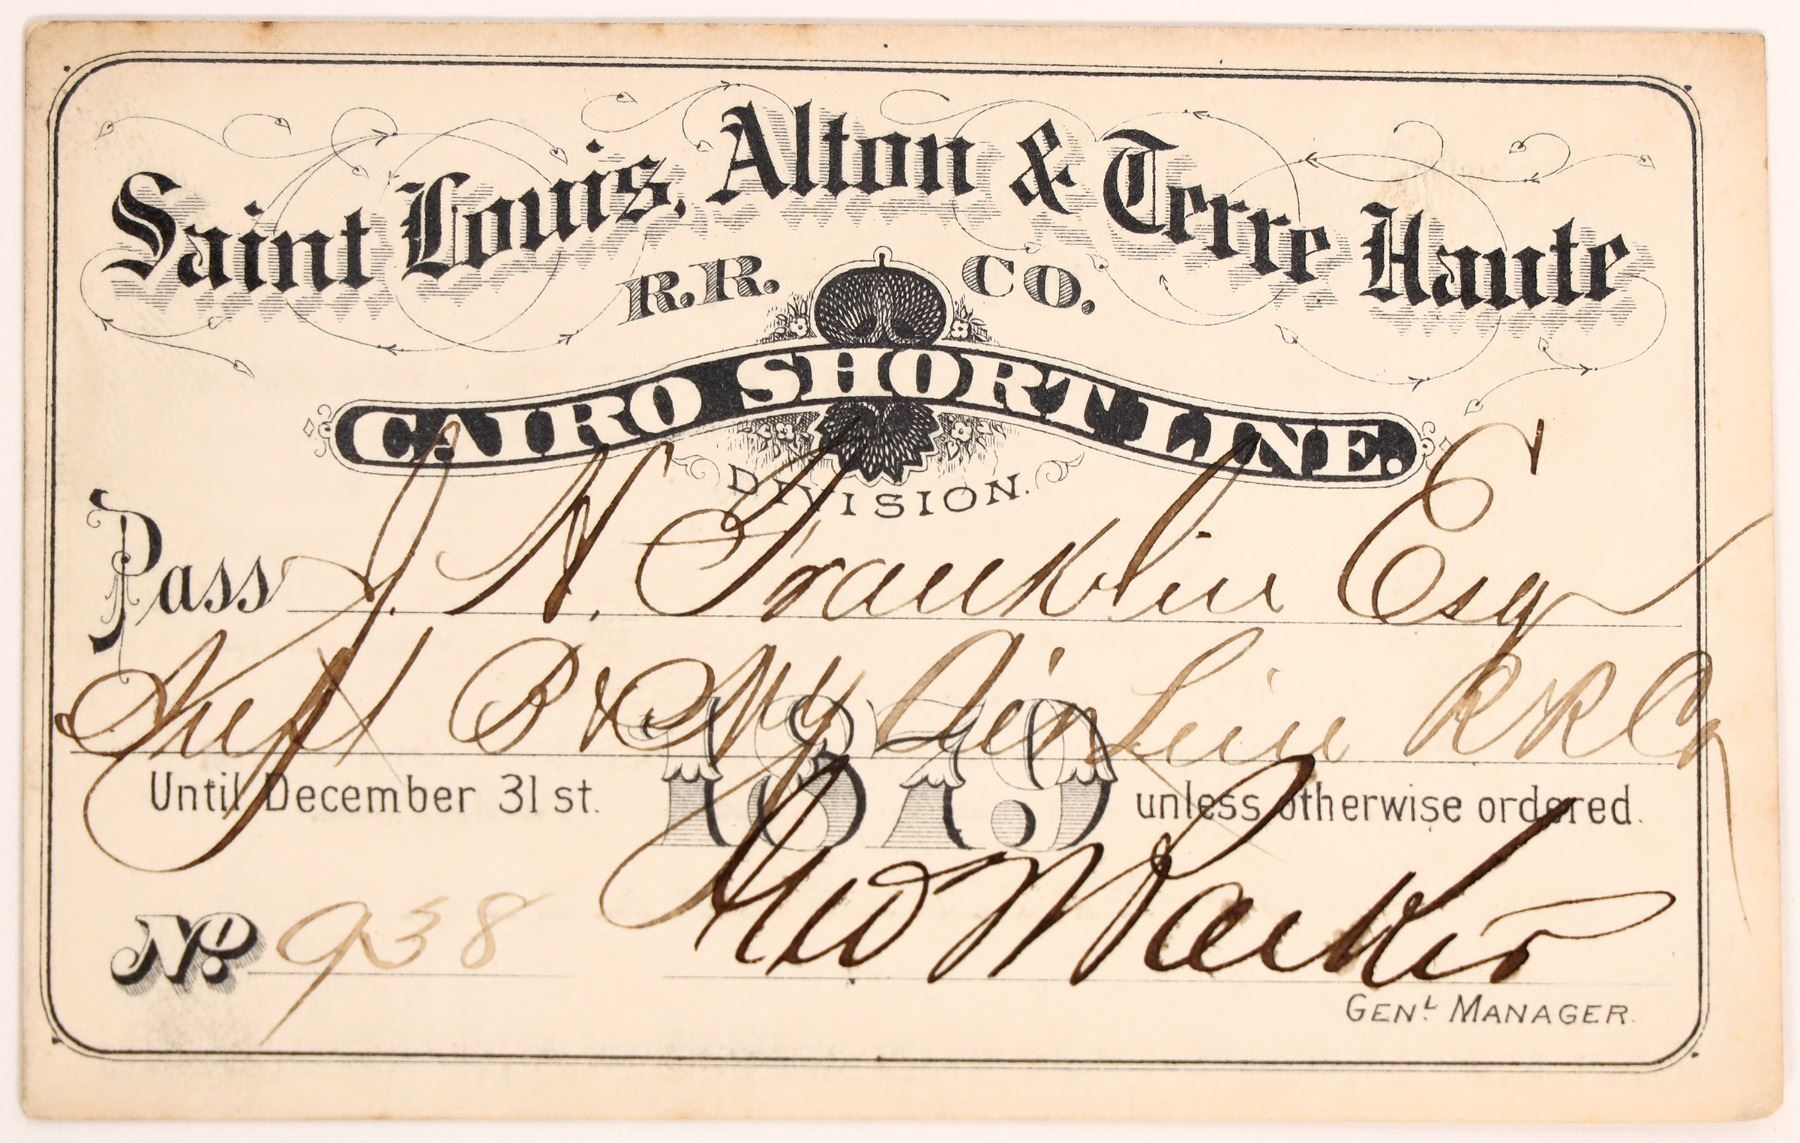 Saint Louis, Alton & Terre Haute
R.R. CO.
CAIRO SHORT LINE.
DIVISION.
Pass J. N. Franklin Esq
Supt B & NY Air Line RR Co
Until December 31st. 1879 unless otherwise ordered.
No. 938 Geo W Parker
GENL MANAGER.